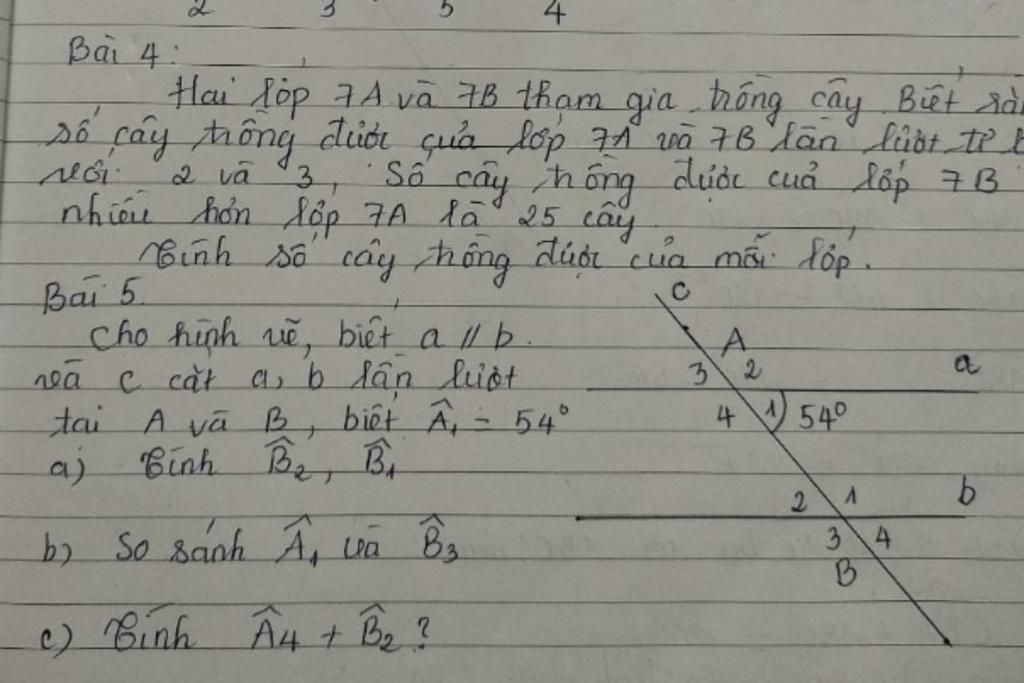 2 3 5 4
Bài 4:
Hai lớp 7A và 7B tham gia trồng cây Biết rằn
số cây trồng được của lớp 7A và 7B lần lượt tỉ l
với 2 và 3, Số cây trồng được của lớp 7B
nhiều hơn lớp 7A là 25 cây
Tính số cây trồng được của mỗi lớp.
Bài 5.
Cho hình vẽ, biết a // b.
và c cắt a, b lần lượt
tại A và B, biết Â₁ = 54°
a) Tính B̂₂, B̂₁
b) So sánh Â₁ và B̂₃
c) Tính Â4 + B̂₂ ?
c
A
3 2 a
4 1 54°
2 1 b
3 4
B